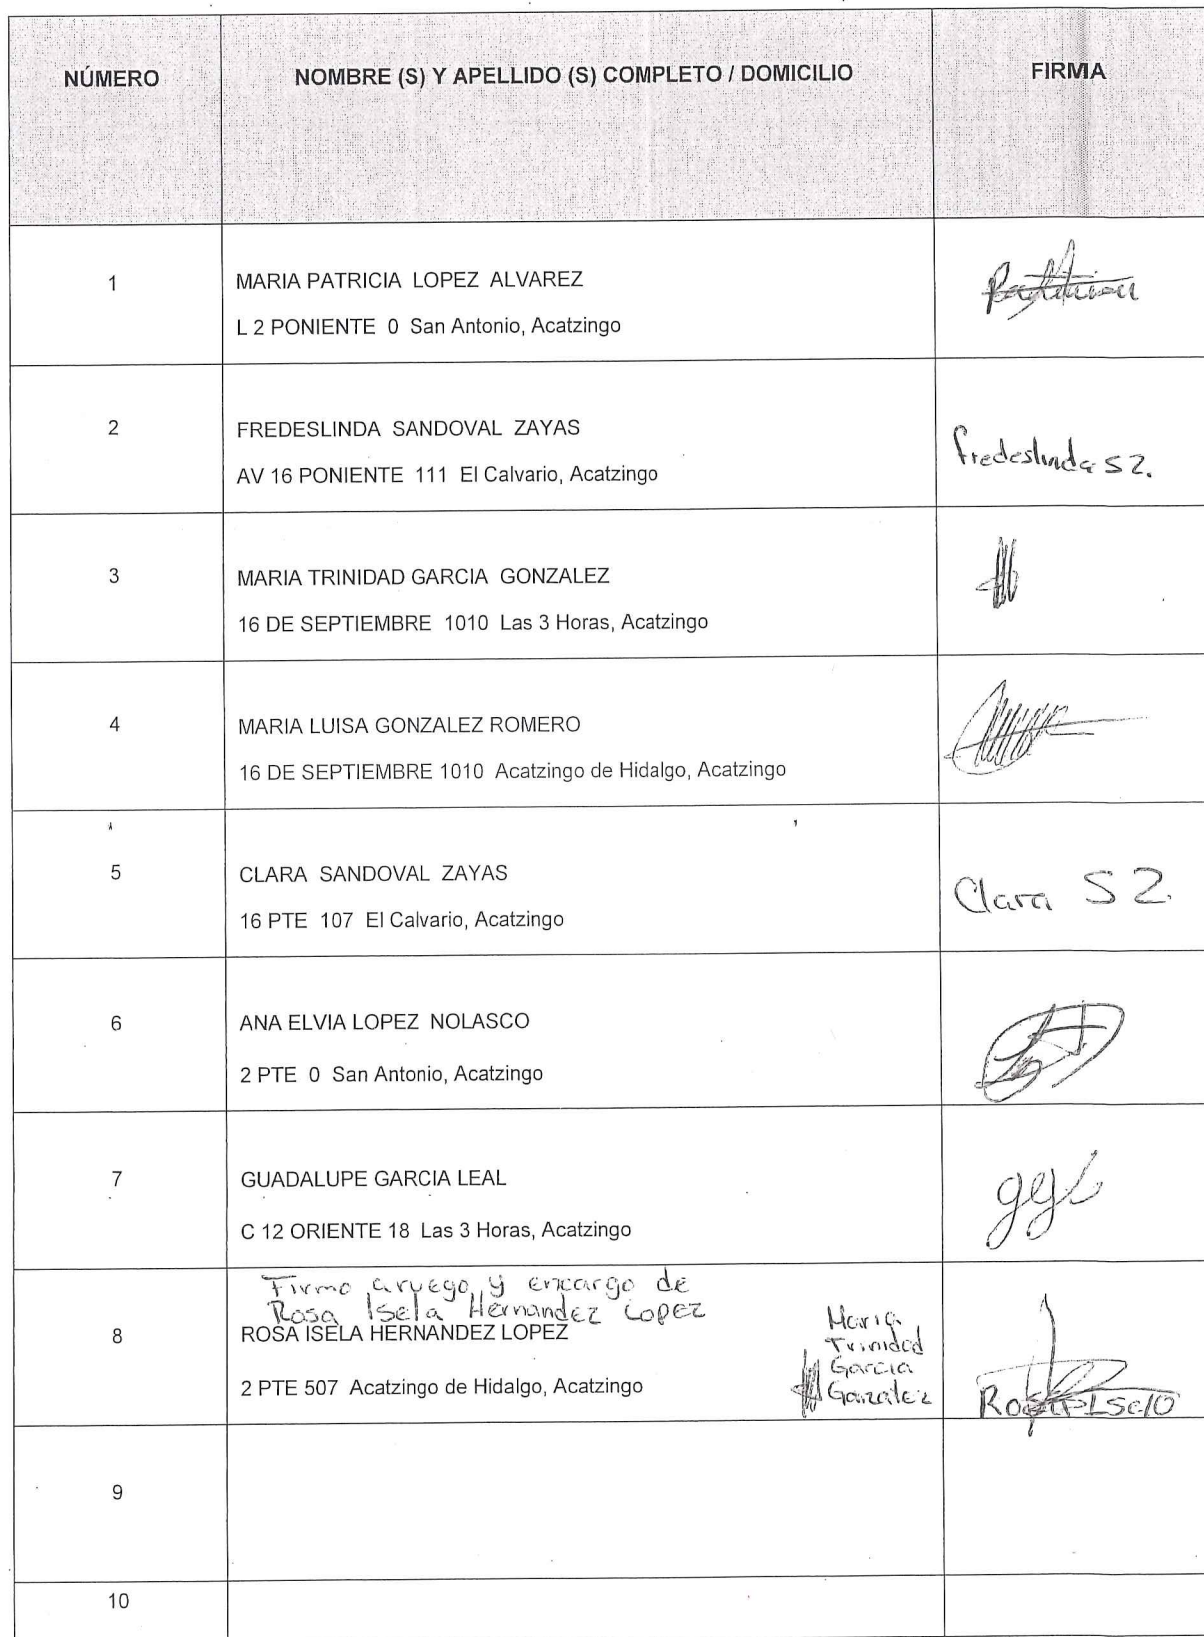 NÚMERO
NOMBRE (S) Y APELLIDO (S) COMPLETO / DOMICILIO
FIRMA
1
MARIA PATRICIA LOPEZ ALVAREZ
L 2 PONIENTE 0 San Antonio, Acatzingo
2
FREDESLINDA SANDOVAL ZAYAS
AV 16 PONIENTE 111 El Calvario, Acatzingo
Fredeslinda S Z.
3
MARIA TRINIDAD GARCIA GONZALEZ
16 DE SEPTIEMBRE 1010 Las 3 Horas, Acatzingo
4
MARIA LUISA GONZALEZ ROMERO
16 DE SEPTIEMBRE 1010 Acatzingo de Hidalgo, Acatzingo
5
CLARA SANDOVAL ZAYAS
16 PTE 107 El Calvario, Acatzingo
Clara S Z.
6
ANA ELVIA LOPEZ NOLASCO
2 PTE 0 San Antonio, Acatzingo
7
GUADALUPE GARCIA LEAL
C 12 ORIENTE 18 Las 3 Horas, Acatzingo
Firmo aruego y encargo de
Rosa Isela Hernandez Lopez
8
ROSA ISELA HERNANDEZ LOPEZ
2 PTE 507 Acatzingo de Hidalgo, Acatzingo
Maria
Trinidad
Garcia
Gonzalez
Rosa Isela
9
10